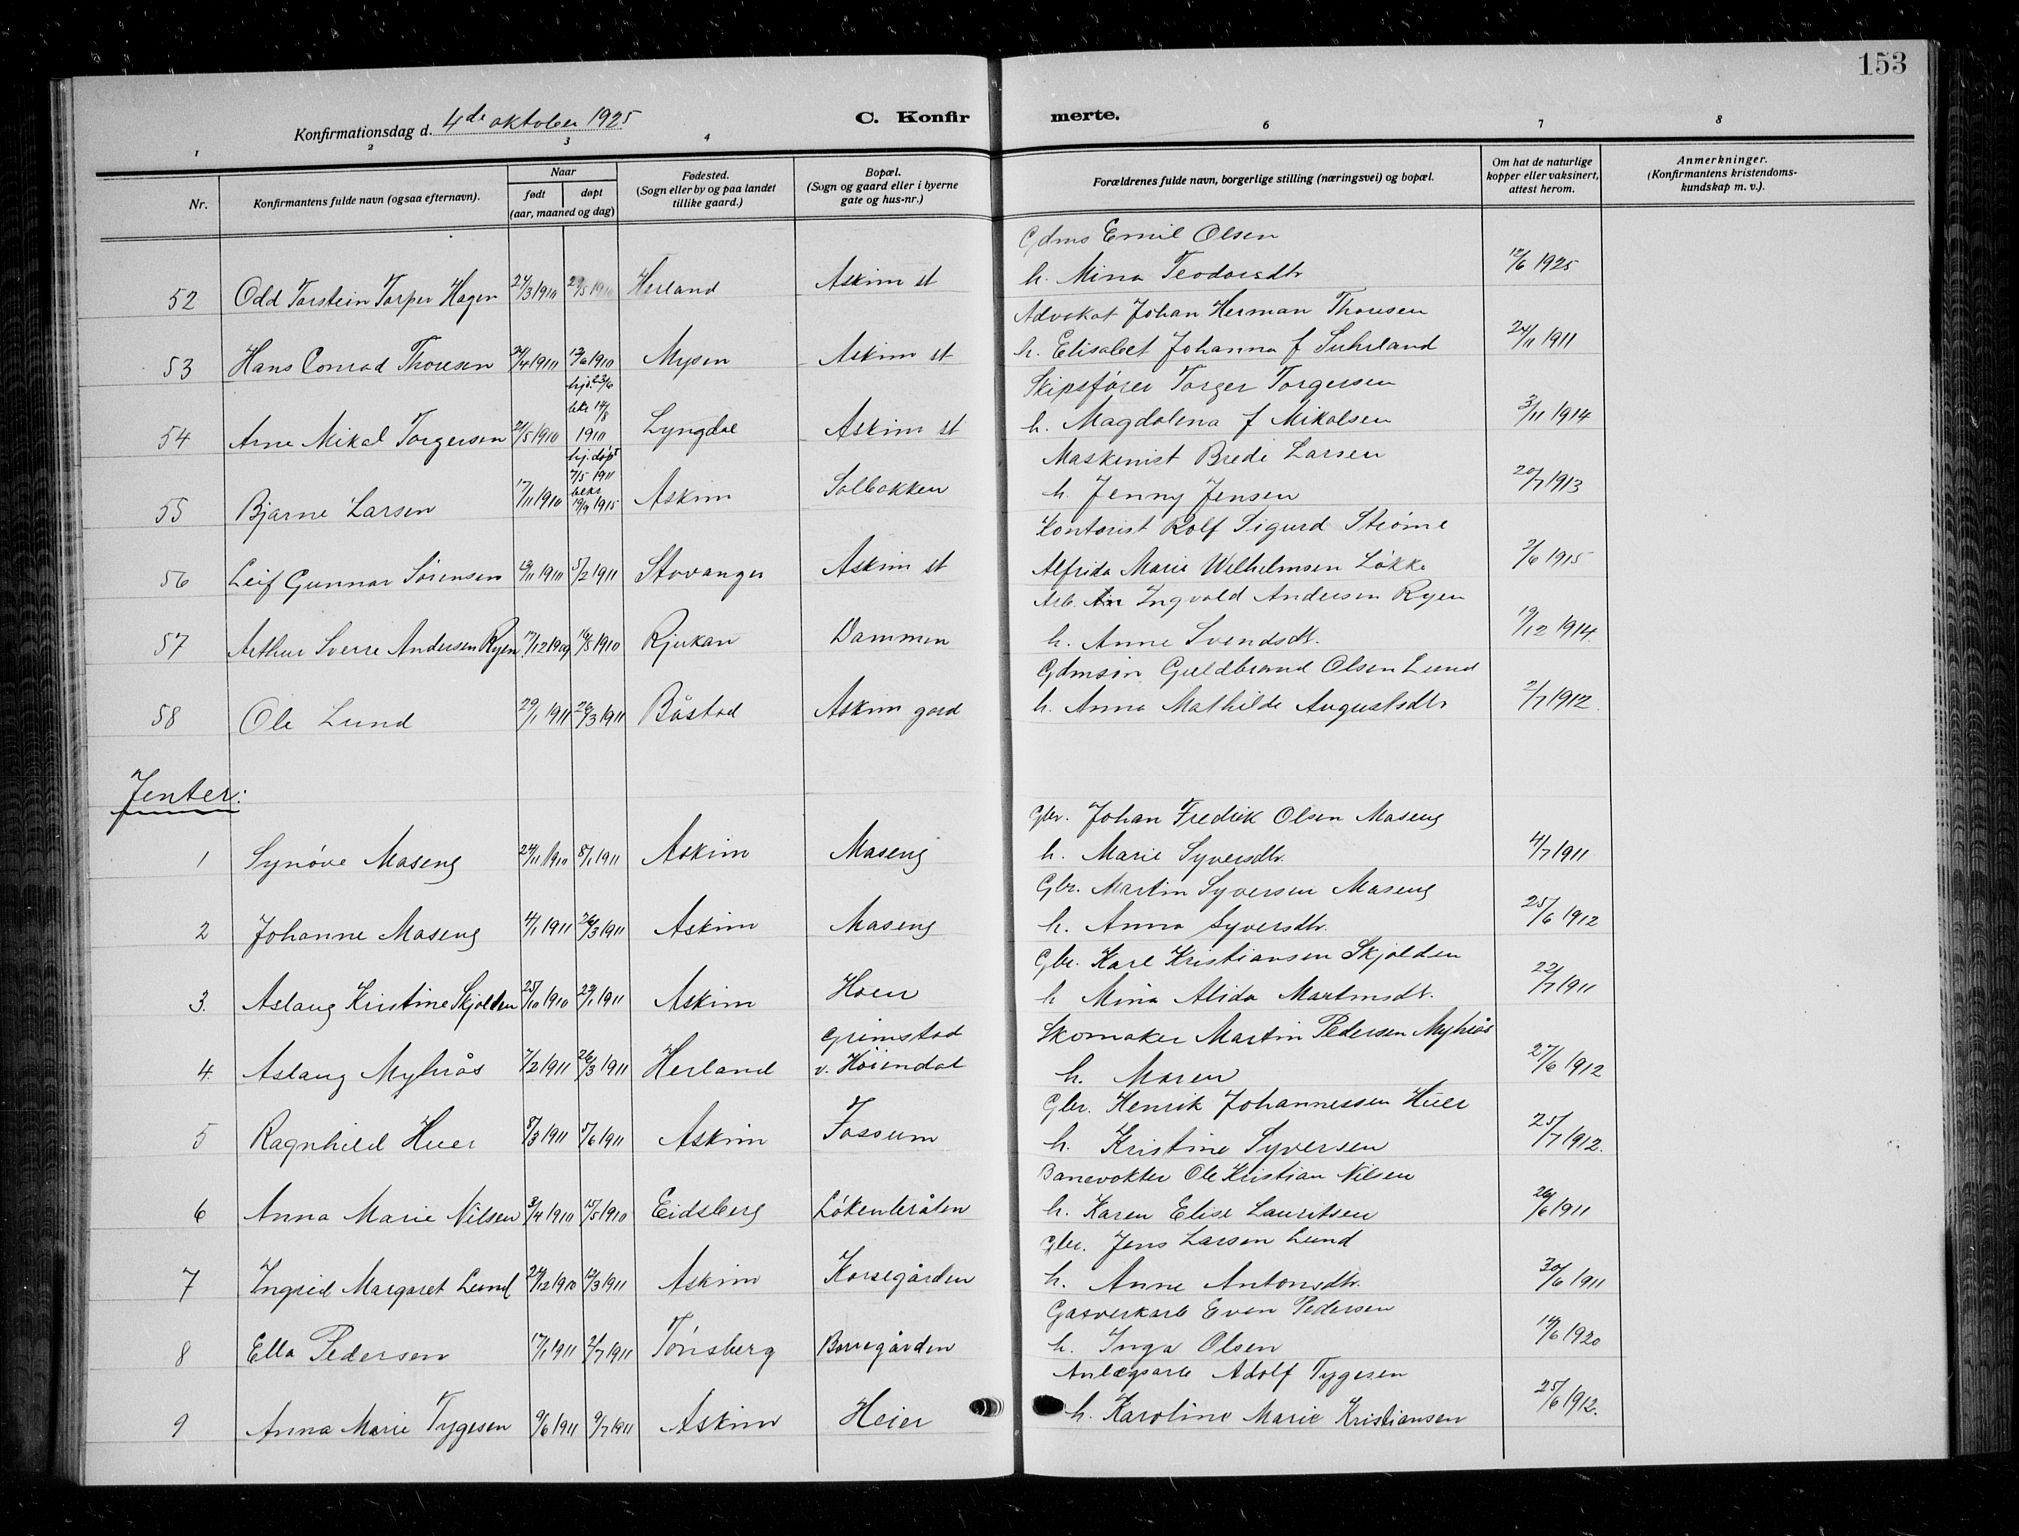 153
Konfirmationsdag d. 4de oktober 1925
C. Konfirmerte.
1 2 3 4 6 7 8
Nr.
Konfirmantens fulde navn (ogsaa efternavn).
Naar
født
døpt
(aar, maaned og dag)
Fødested.
(Sogn eller by og paa landet
tillike gaard.)
Bopæl.
(Sogn og gaard eller i byerne
gate og hus-nr.)
Forældrenes fulde navn, borgerlige stilling (næringsvei) og bopæl.
Om hat de naturlige
kopper eller vaksinert,
attest herom.
Anmerkninger.
(Konfirmantens kristendoms-
kundskap m. v.).
Gdms Emil Olsen
52 Odd Torstein Torper Hagen 24/3 1910 29/5 1910 Herland Askim st h. Mina Teodorsdtr 12/6 1925
Advokat Johan Herman Thoresen
53 Hans Conrad Thoresen 24/4 1911 Mysen Askim st h. Elisabet Johanna f Suhrland 24/11 1911
12/6 1910
Skipsfører Torger Torgersen
hjd. 23/6
bekr 14/8
54 Arne Mikal Torgersen 21/5 1910 1910 Lyngdal Askim st h. Magdalena f Mikalsen 3/11 1914
Maskinist Brede Larsen
hj. døpt
7/5 1911
bekr
55 Bjarne Larsen 17/11 1910 19/9 1915 Askim Solbakken h. Jenny Jensen 20/7 1913
Kontorist Rolf Sigurd Strøme
56 Leif Gunnar Sørensen 13/11 1910 5/2 1911 Stavanger Askim st Alfrida Marie Wilhelmsen Løkke 2/6 1915
Arb. Ingvald Andersen Ryen
57 Arthur Sverre Andersen Ryen 17/12 1909 16/5 1910 Rjukan Dammen h. Anne Svendsdt. 19/12 1914
Gdmsin Guldbrand Olsen Lund
58 Ole Lund 29/1 1911 26/3 1911 Båstad Askim gard h. Anna Mathilde Augustsdtr 2/7 1912.
Jenter:
Gbr. Johan Fredrik Olsen Maseng
1 Synøve Maseng 24/11 1910 8/1 1911 Askim Maseng h. Marie Syversdtr. 4/7 1911
Gbr. Martin Syversen Maseng
2 Johanne Maseng 4/1 1911 26/3 1911 Askim Maseng h. Anna Syversdtr. 25/6 1912
Gbr. Karl Kristiansen Skjolden
3. Aslaug Kristine Skjolden 25/10 1910 29/1 1911 Askim Hoen h Mina Alida Martinsdt. 22/7 1911
Grimstad Skomaker Martin Pedersen Myhrås
4. Aslaug Myhrås 7/2 1911 26/3 1911 Herland v. Høiendal h. Maren 27/6 1912
Gbr. Henrik Johannessen Huer
5 Ragnhild Huer 8/3 1911 5/6 1911 Askim Fossum h. Kristine Syversen 25/7 1912.
Banevokter Ole Kristian Nilsen
6 Anna Marie Nilsen 3/4 1910 15/5 1910 Eidsberg Løkenbråten h. Karen Elise Lauritsen 26/6 1911
Gbr. Jens Larsen Lund
7 Ingrid Margaret Lund 24/12 1910 12/3 1911 Askim Korsegården h. Anne Antonsdtr. 30/6 1911
Gasverkarb Even Pedersen
8 Ella Pedersen 17/1 1911 2/7 1911 Tønsberg Borregården h. Inga Olsen 14/6 1920
Anlægsarb Adolf Tygesen
9 Anna Marie Tygesen 9/6 1911 9/7 1911 Askim Heier h. Karoline Marie Kristiansen 25/6 1912.